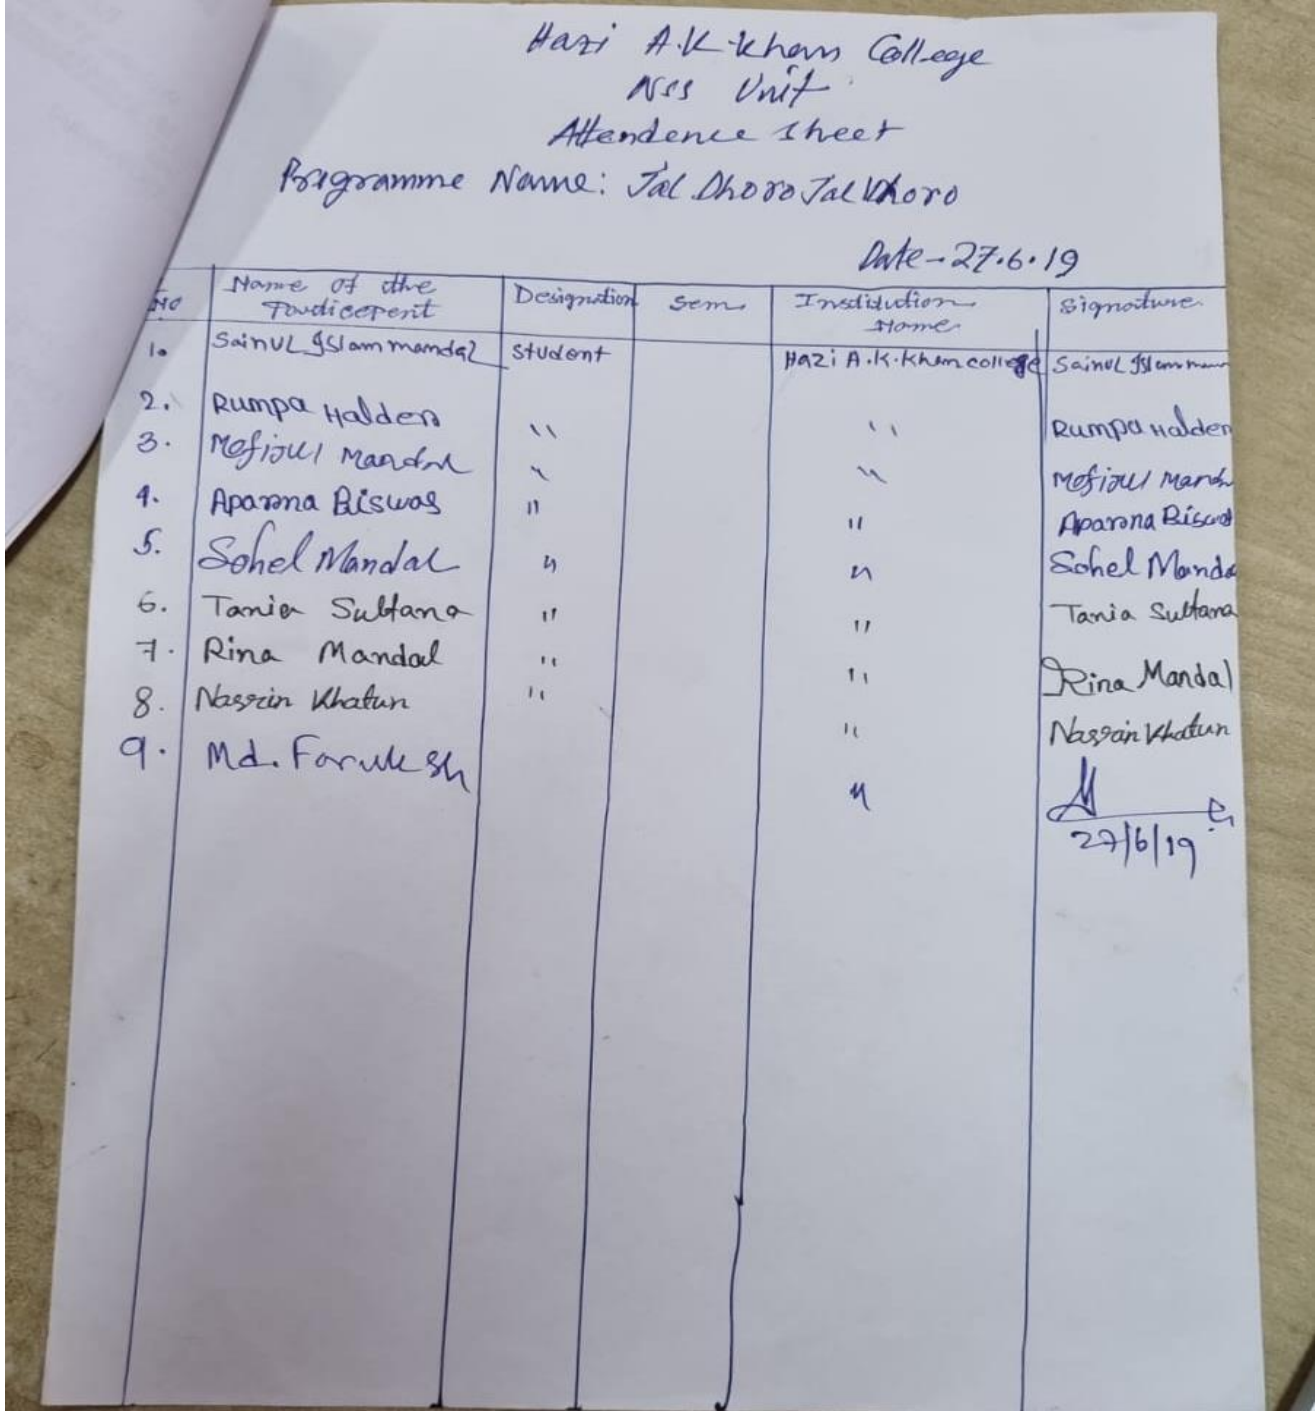 Hazi A.K Khan College
NSS Unit
Attendence Sheet
Programme Name: Jal Dhoro Jal Bhoro
Date - 27.6.19
No Name of the Designation Sem. Institution Signature
Participent Name
1. Sainul Islam mandal Student Hazi A.K. Khan college Sainul Islam
2. Rumpa Halder " " Rumpa Halder
3. Mofijul Mandal " " Mofijul Manda
4. Aparna Biswas " " Aparna Biswas
5. Sohel Mandal " " Sohel Manda
6. Tania Sultana " " Tania Sultana
7. Rina Mandal " " Rina Mandal
8. Nasrin Khatun " " Nasrin Khatun
9. Md. Faruk Sk "
27/6/19